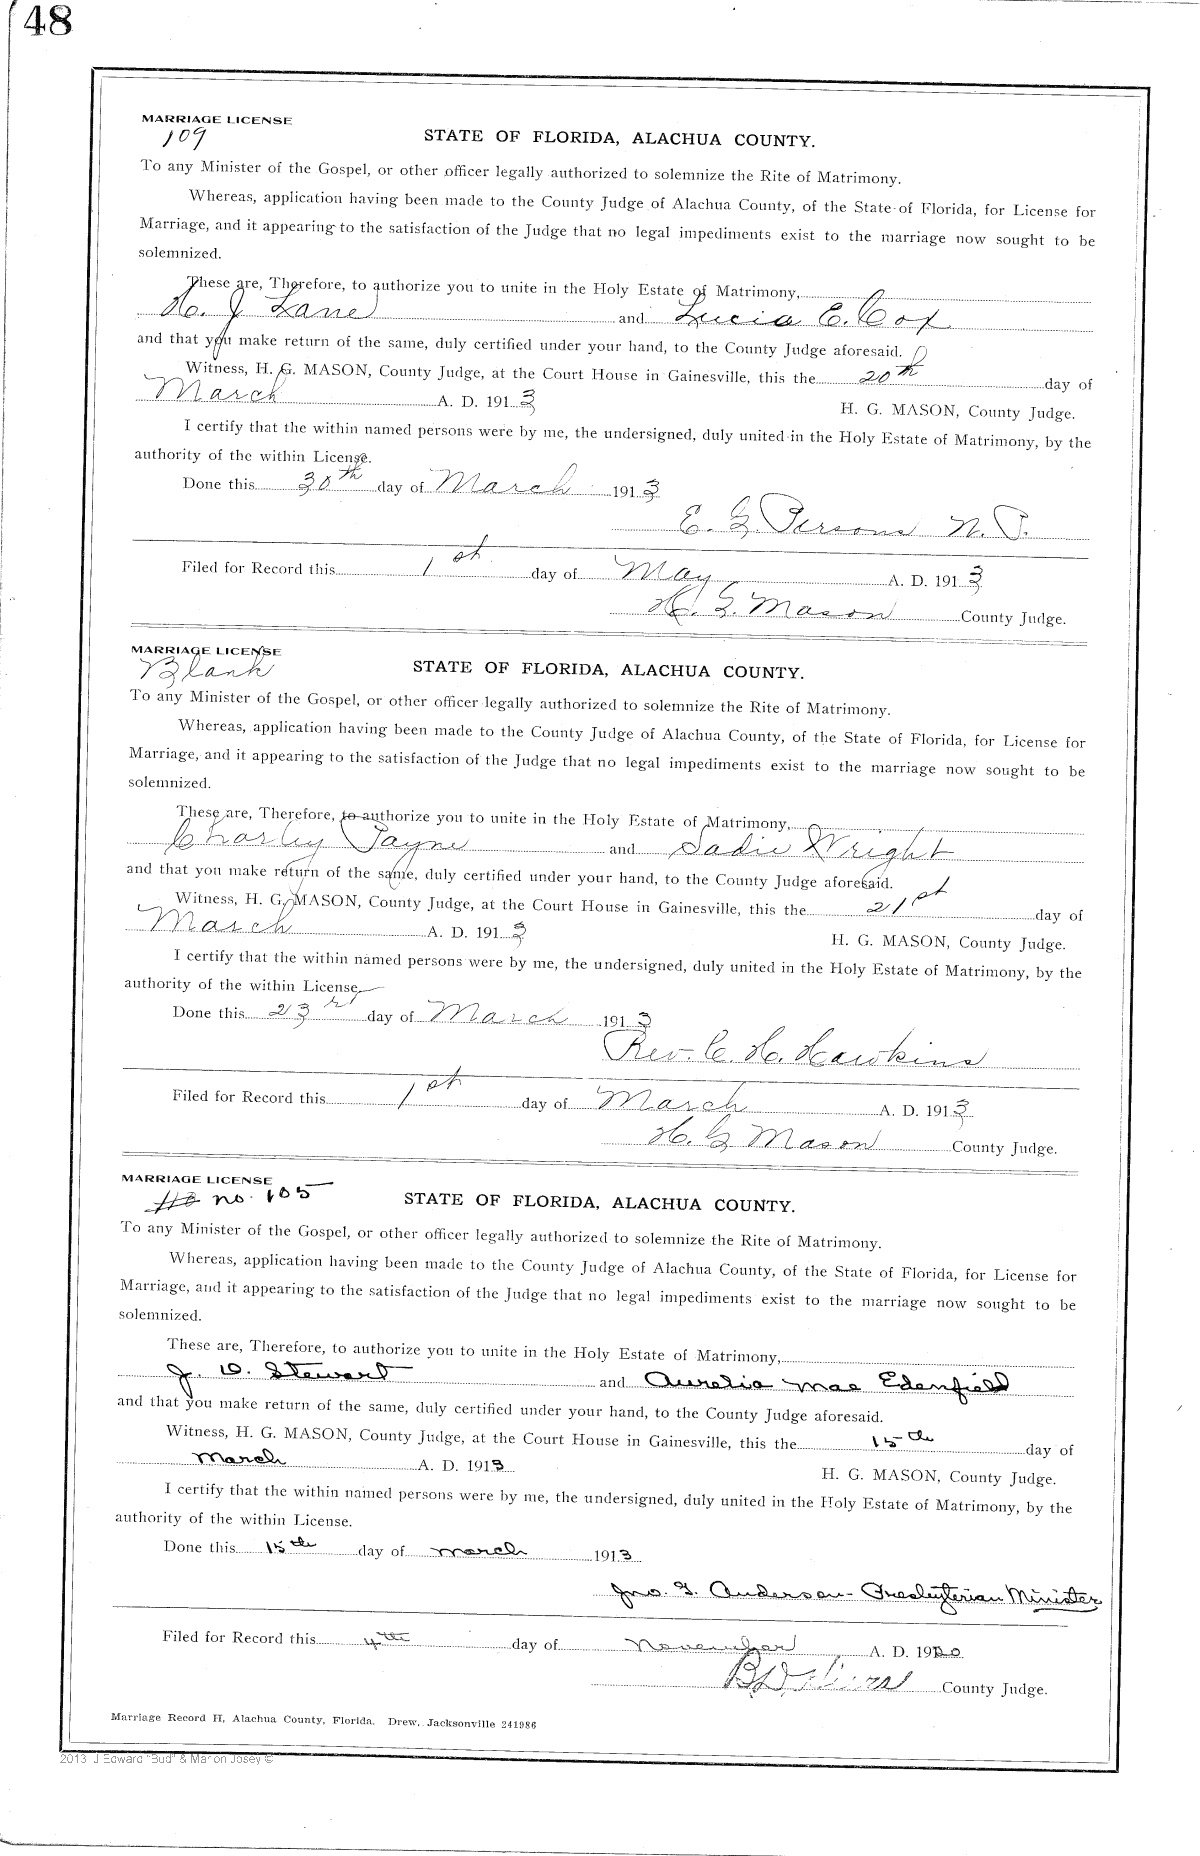 48
MARRIAGE LICENSE
109
STATE OF FLORIDA, ALACHUA COUNTY.
To any Minister of the Gospel, or other officer legally authorized to solemnize the Rite of Matrimony.
Whereas, application having been made to the County Judge of Alachua County, of the State of Florida, for License for
Marriage, and it appearing to the satisfaction of the Judge that no legal impediments exist to the marriage now sought to be
solemnized.
These are, Therefore, to authorize you to unite in the Holy Estate of Matrimony,
H. J Lane and Lucia E. Cox
and that you make return of the same, duly certified under your hand, to the County Judge aforesaid.
Witness, H. G. MASON, County Judge, at the Court House in Gainesville, this the 20th day of
March A. D. 1913
H. G. MASON, County Judge.
I certify that the within named persons were by me, the undersigned, duly united in the Holy Estate of Matrimony, by the
authority of the within License.
Done this 30th day of March 1913
E. G. Persons N. P.
Filed for Record this 1st day of May A. D. 1913
H. G. Mason County Judge.
MARRIAGE LICENSE
Blank
STATE OF FLORIDA, ALACHUA COUNTY.
To any Minister of the Gospel, or other officer legally authorized to solemnize the Rite of Matrimony.
Whereas, application having been made to the County Judge of Alachua County, of the State of Florida, for License for
Marriage, and it appearing to the satisfaction of the Judge that no legal impediments exist to the marriage now sought to be
solemnized.
These are, Therefore, to authorize you to unite in the Holy Estate of Matrimony,
Charley Payne and Sadie Wright
and that you make return of the same, duly certified under your hand, to the County Judge aforesaid.
Witness, H. G. MASON, County Judge, at the Court House in Gainesville, this the 21st day of
March A. D. 1913
H. G. MASON, County Judge.
I certify that the within named persons were by me, the undersigned, duly united in the Holy Estate of Matrimony, by the
authority of the within License.
Done this 23rd day of March 1913
Rev. C. H. Hawkins
Filed for Record this 1st day of March A. D. 1913
H. G Mason County Judge.
MARRIAGE LICENSE
no. 105
STATE OF FLORIDA, ALACHUA COUNTY.
To any Minister of the Gospel, or other officer legally authorized to solemnize the Rite of Matrimony.
Whereas, application having been made to the County Judge of Alachua County, of the State of Florida, for License for
Marriage, and it appearing to the satisfaction of the Judge that no legal impediments exist to the marriage now sought to be
solemnized.
These are, Therefore, to authorize you to unite in the Holy Estate of Matrimony,
J. D. Stewart and Aurelia Mae Edenfield
and that you make return of the same, duly certified under your hand, to the County Judge aforesaid.
Witness, H. G. MASON, County Judge, at the Court House in Gainesville, this the 15th day of
March A. D. 1913
H. G. MASON, County Judge.
I certify that the within named persons were by me, the undersigned, duly united in the Holy Estate of Matrimony, by the
authority of the within License.
Done this 15th day of March 1913
Jno. G. Anderson - Presbyterian Minister
Filed for Record this 4th day of November A. D. 1920
County Judge.
Marriage Record H, Alachua County, Florida. Drew, Jacksonville 241986
2013 J Edward "Bud" & Marion Josey ©